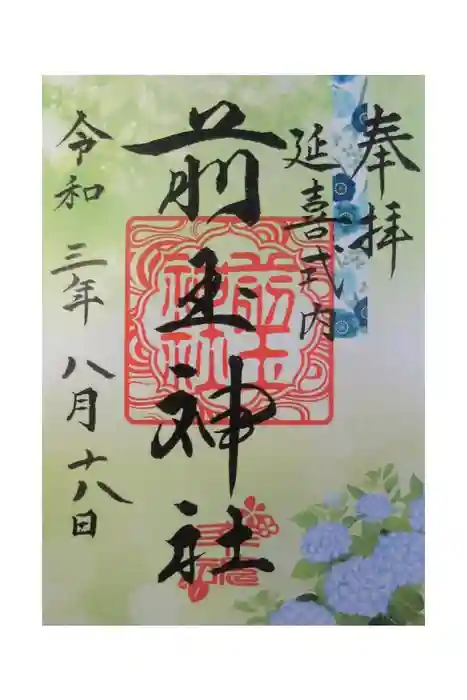 奉拝
延喜式内
前玉神社
令和三年八月十八日
前玉
神社